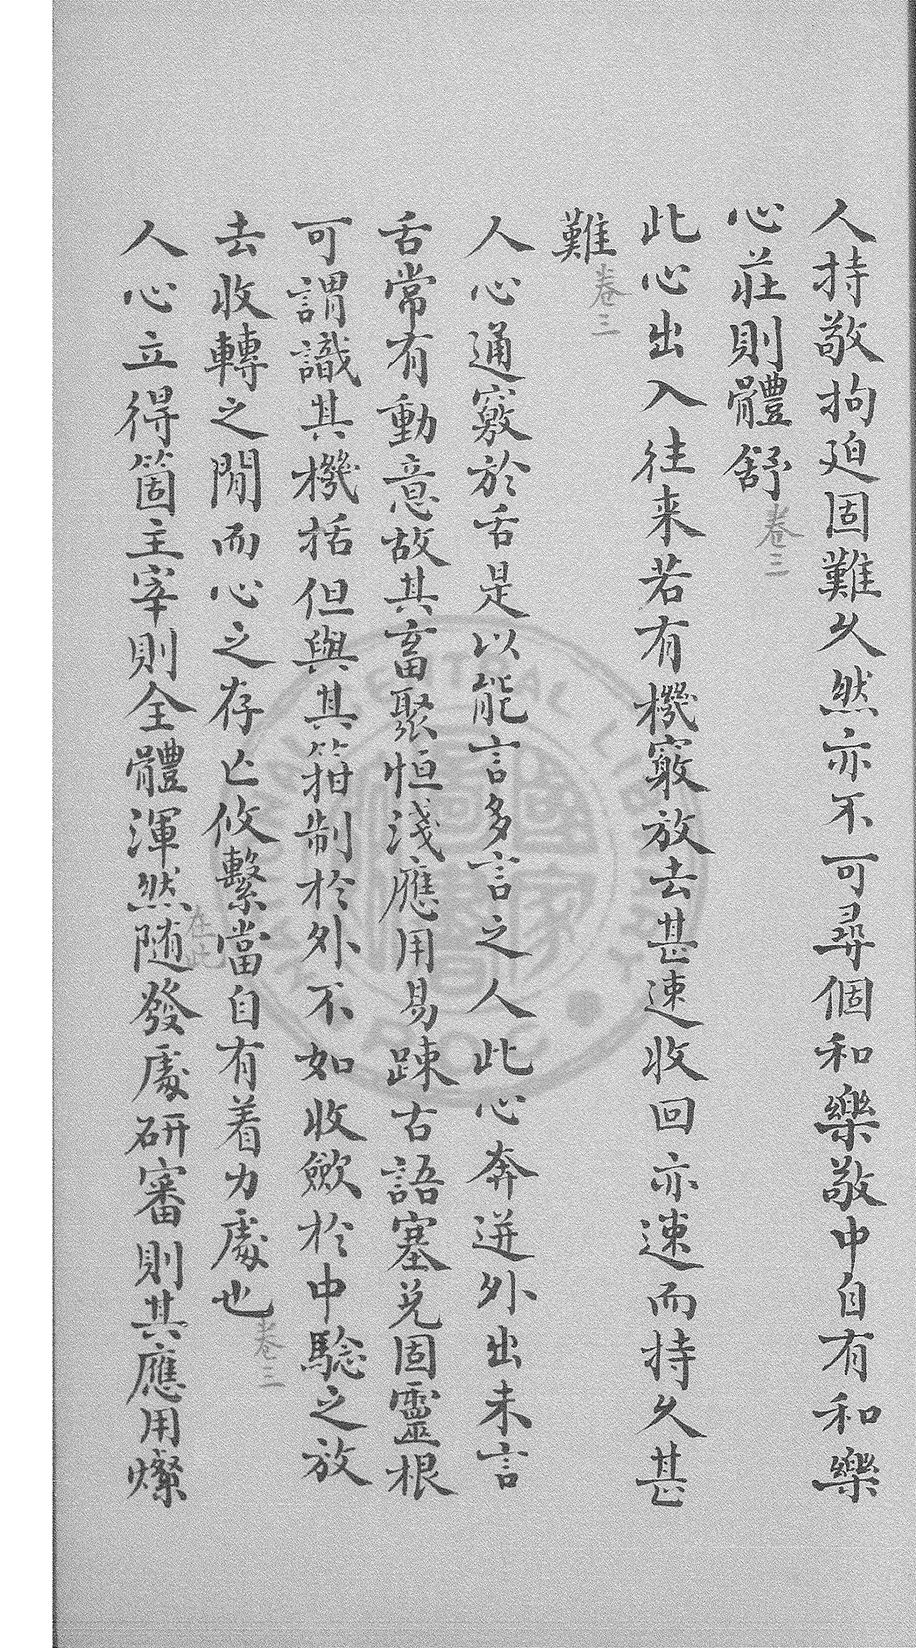 人持敬拘迫固難久然亦不可尋個和樂敬中自有和樂
心莊則體舒卷三
此心出入往来若有機竅放去甚速收回亦速而持久甚
難卷三
人心通竅於舌是以能言多言之人此心奔迸外出未言
舌常有動意故其畜聚恒淺應用易踈古語塞兌固靈根
可謂識其機括但與其箝制於外不如收歛於中騐之放
去收轉之閒而心之存亡攸繫當自有着力處也卷三
在此
人心立得箇主宰則全體渾然随發處研審則其應用燦
NATIONAL CENTRAL LIBRARY
ROC
國家圖書館